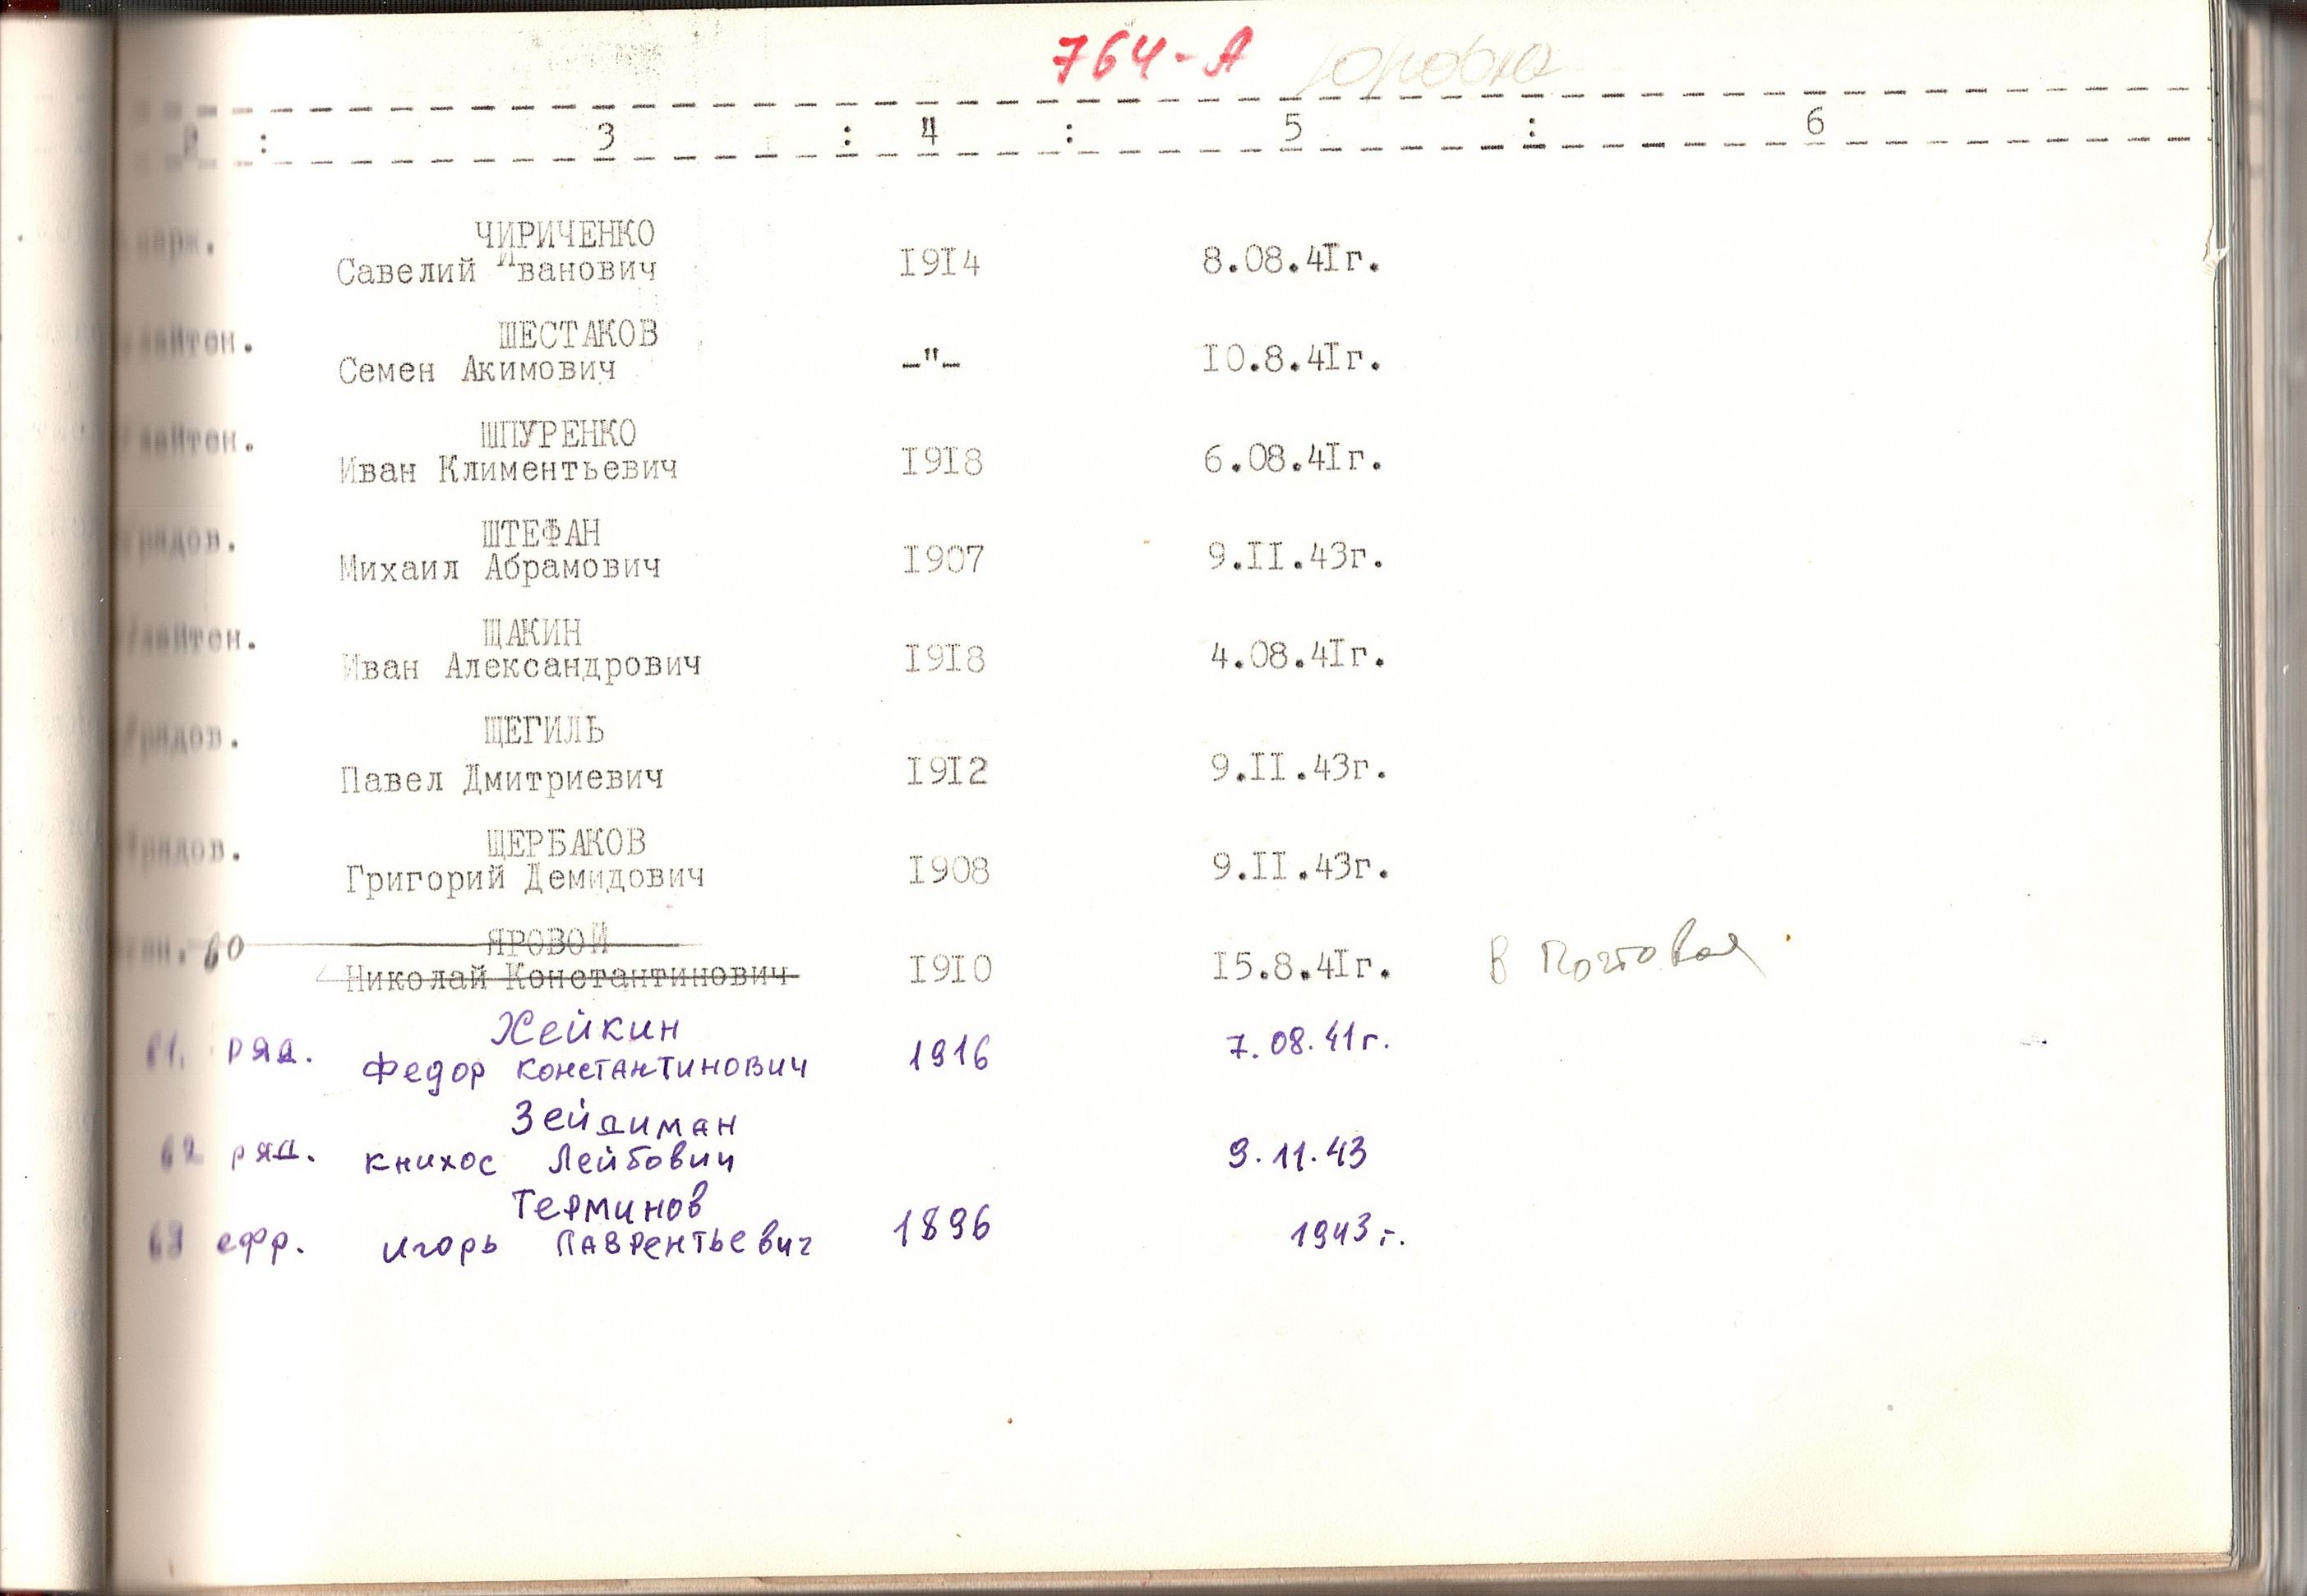 764-А
: 3 : 4 : 5 : 6
ЧИРИЧЕНКО
Савелий Иванович 1914 8.08.41г.
лейтен. ШЕСТАКОВ
Семен Акимович -"- 10.8.41г.
лейтен. ШПУРЕНКО
Иван Климентьевич 1918 6.08.41г.
рядов. ШТЕФАН
Михаил Абрамович 1907 9.II.43г.
лейтен. ЩАКИН
Иван Александрович 1918 4.08.41г.
рядов. ЩЕГИЛЬ
Павел Дмитриевич 1912 9.II.43г.
рядов. ЩЕРБАКОВ
Григорий Демидович 1908 9.II.43г.
60 ЯРОВОЙ
Николай Константинович 1910 15.8.41г. в Почтовая
Хейкин
61. ряд. Федор Константинович 1916 7.08.41г.
Зейдиман
62 ряд. Книхос Лейбович 9.11.43
Терминов
63 ефр. Игорь Лаврентьевич 1896 1943г.